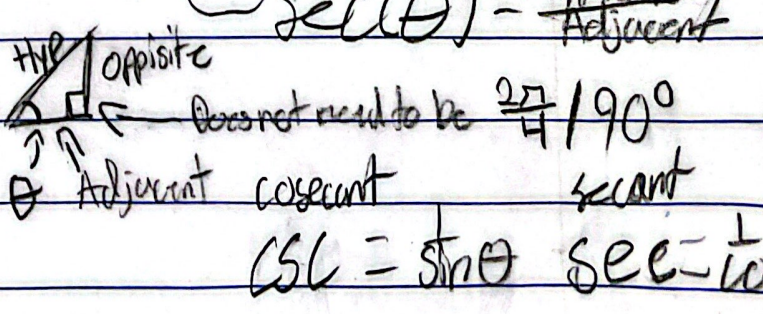 sec(θ) = 
Adjacent
Hyp Oppisite
Does not need to be 2π/4 / 90°
θ Adjacent cosecant secant
csc = 1/sinθ sec = 1/co